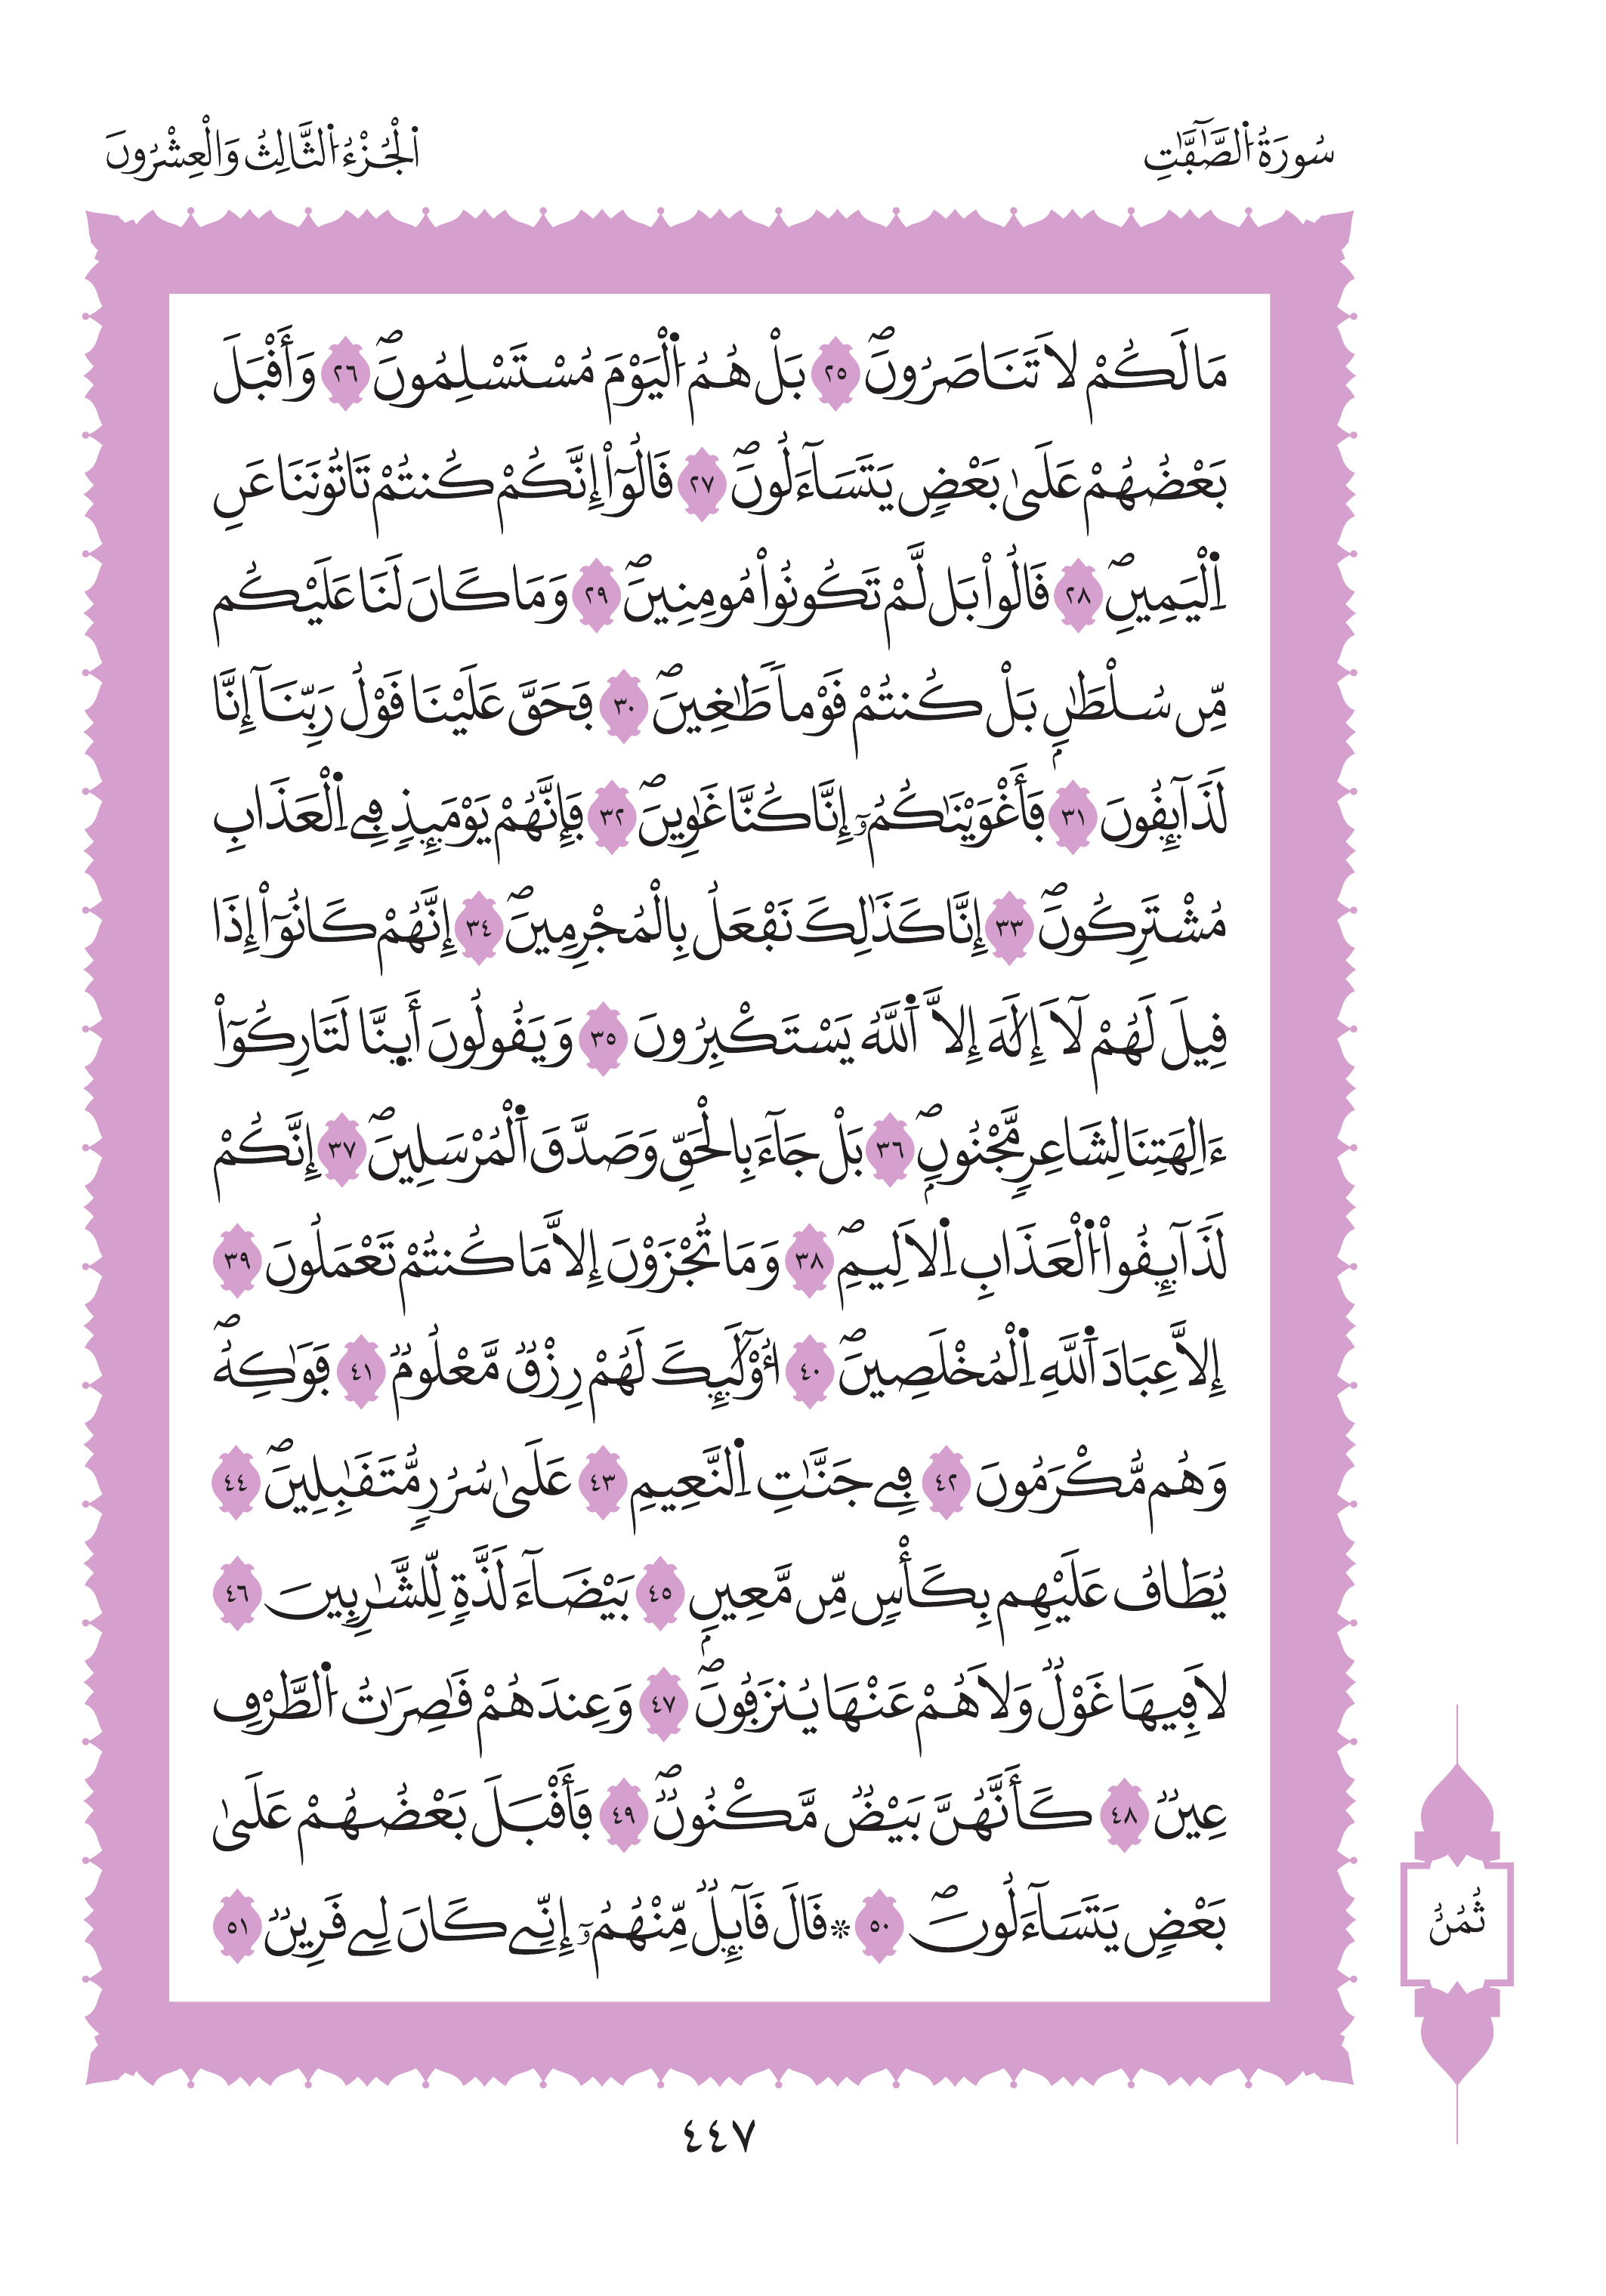 سُورَةُ اُ۬لصَّٰٓفَّٰتِ
اَ۬لْجُزْءُ اُ۬لثَّالِثُ وَالْعِشْرُونَ
مَا لَكُمْ لَا تَنَاصَرُونَۖ ٢٥ بَلْ هُمُ اُ۬لْيَوْمَ مُسْتَسْلِمُونَۖ ٢٦ وَأَقْبَلَ
بَعْضُهُمْ عَلَىٰ بَعْضٖ يَتَسَآءَلُونَۖ ٢٧ قَالُوٓاْ إِنَّكُمْ كُنتُمْ تَاتُونَنَا عَنِ
اِ۬لْيَمِينِۖ ٢٨ قَالُواْ بَل لَّمْ تَكُونُواْ مُومِنِينَۖ ٢٩ وَمَا كَانَ لَنَا عَلَيْكُم
مِّن سُلْطَٰنِۢ بَلْ كُنتُمْ قَوْماٗ طَٰغِينَۖ ٣٠ فَحَقَّ عَلَيْنَا قَوْلُ رَبِّنَآ إِنَّا
لَذَآئِقُونَ ٣١ فَأَغْوَيْنَٰكُمُۥٓ إِنَّا كُنَّا غَٰوِينَۖ ٣٢ فَإِنَّهُمْ يَوْمَئِذٖ فِے اِ۬لْعَذَابِ
مُشْتَرِكُونَۖ ٣٣ إِنَّا كَذَٰلِكَ نَفْعَلُ بِالْمُجْرِمِينَۖ ٣٤ إِنَّهُمْ كَانُوٓاْ إِذَا
قِيلَ لَهُمْ لَآ إِلَٰهَ إِلَّا اَ۬للَّهُ يَسْتَكْبِرُونَ ٣٥ وَيَقُولُونَ أَى۪نَّا لَتَارِكُوٓاْ
ءَالِهَتِنَا لِشَاعِرٖ مَّجْنُونِۢۖ ٣٦ بَلْ جَآءَ بِالْحَقِّ وَصَدَّقَ اَ۬لْمُرْسَلِينَۖ ٣٧ إِنَّكُمْ
لَذَآئِقُواْ اُ۬لْعَذَابِ اِ۬لَالِيمِۖ ٣٨ وَمَا تُجْزَوْنَ إِلَّا مَا كُنتُمْ تَعْمَلُونَ ٣٩
إِلَّا عِبَادَ اَ۬للَّهِ اِ۬لْمُخْلَصِينَۖ ٤٠ أُوْلَٰٓئِكَ لَهُمْ رِزْقٞ مَّعْلُومٞ ٤١ فَوَٰكِهُۖ
وَهُم مُّكْرَمُونَ ٤٢ فِے جَنَّٰتِ اِ۬لنَّعِيمِ ٤٣ عَلَىٰ سُرُرٖ مُّتَقَٰبِلِينَۖ ٤٤
يُطَافُ عَلَيْهِم بِكَأْسٖ مِّن مَّعِينِۢ ٤٥ بَيْضَآءَ لَذَّةٖ لِّلشَّٰرِبِينَ ٤٦
لَا فِيهَا غَوْلٞ وَلَا هُمْ عَنْهَا يُنزَفُونَۖ ٤٧ وَعِندَهُمْ قَٰصِرَٰتُ اُ۬لطَّرْفِ
عِينٞ ٤٨ كَأَنَّهُنَّ بَيْضٞ مَّكْنُونٞۖ ٤٩ فَأَقْبَلَ بَعْضُهُمْ عَلَىٰ
بَعْضٖ يَتَسَآءَلُونَۖ ٥٠ ۞قَالَ قَآئِلٞ مِّنْهُمُۥٓ إِنِّے كَانَ لِے قَرِينٞ ٥١
ثُمُنُ
٤٤٧